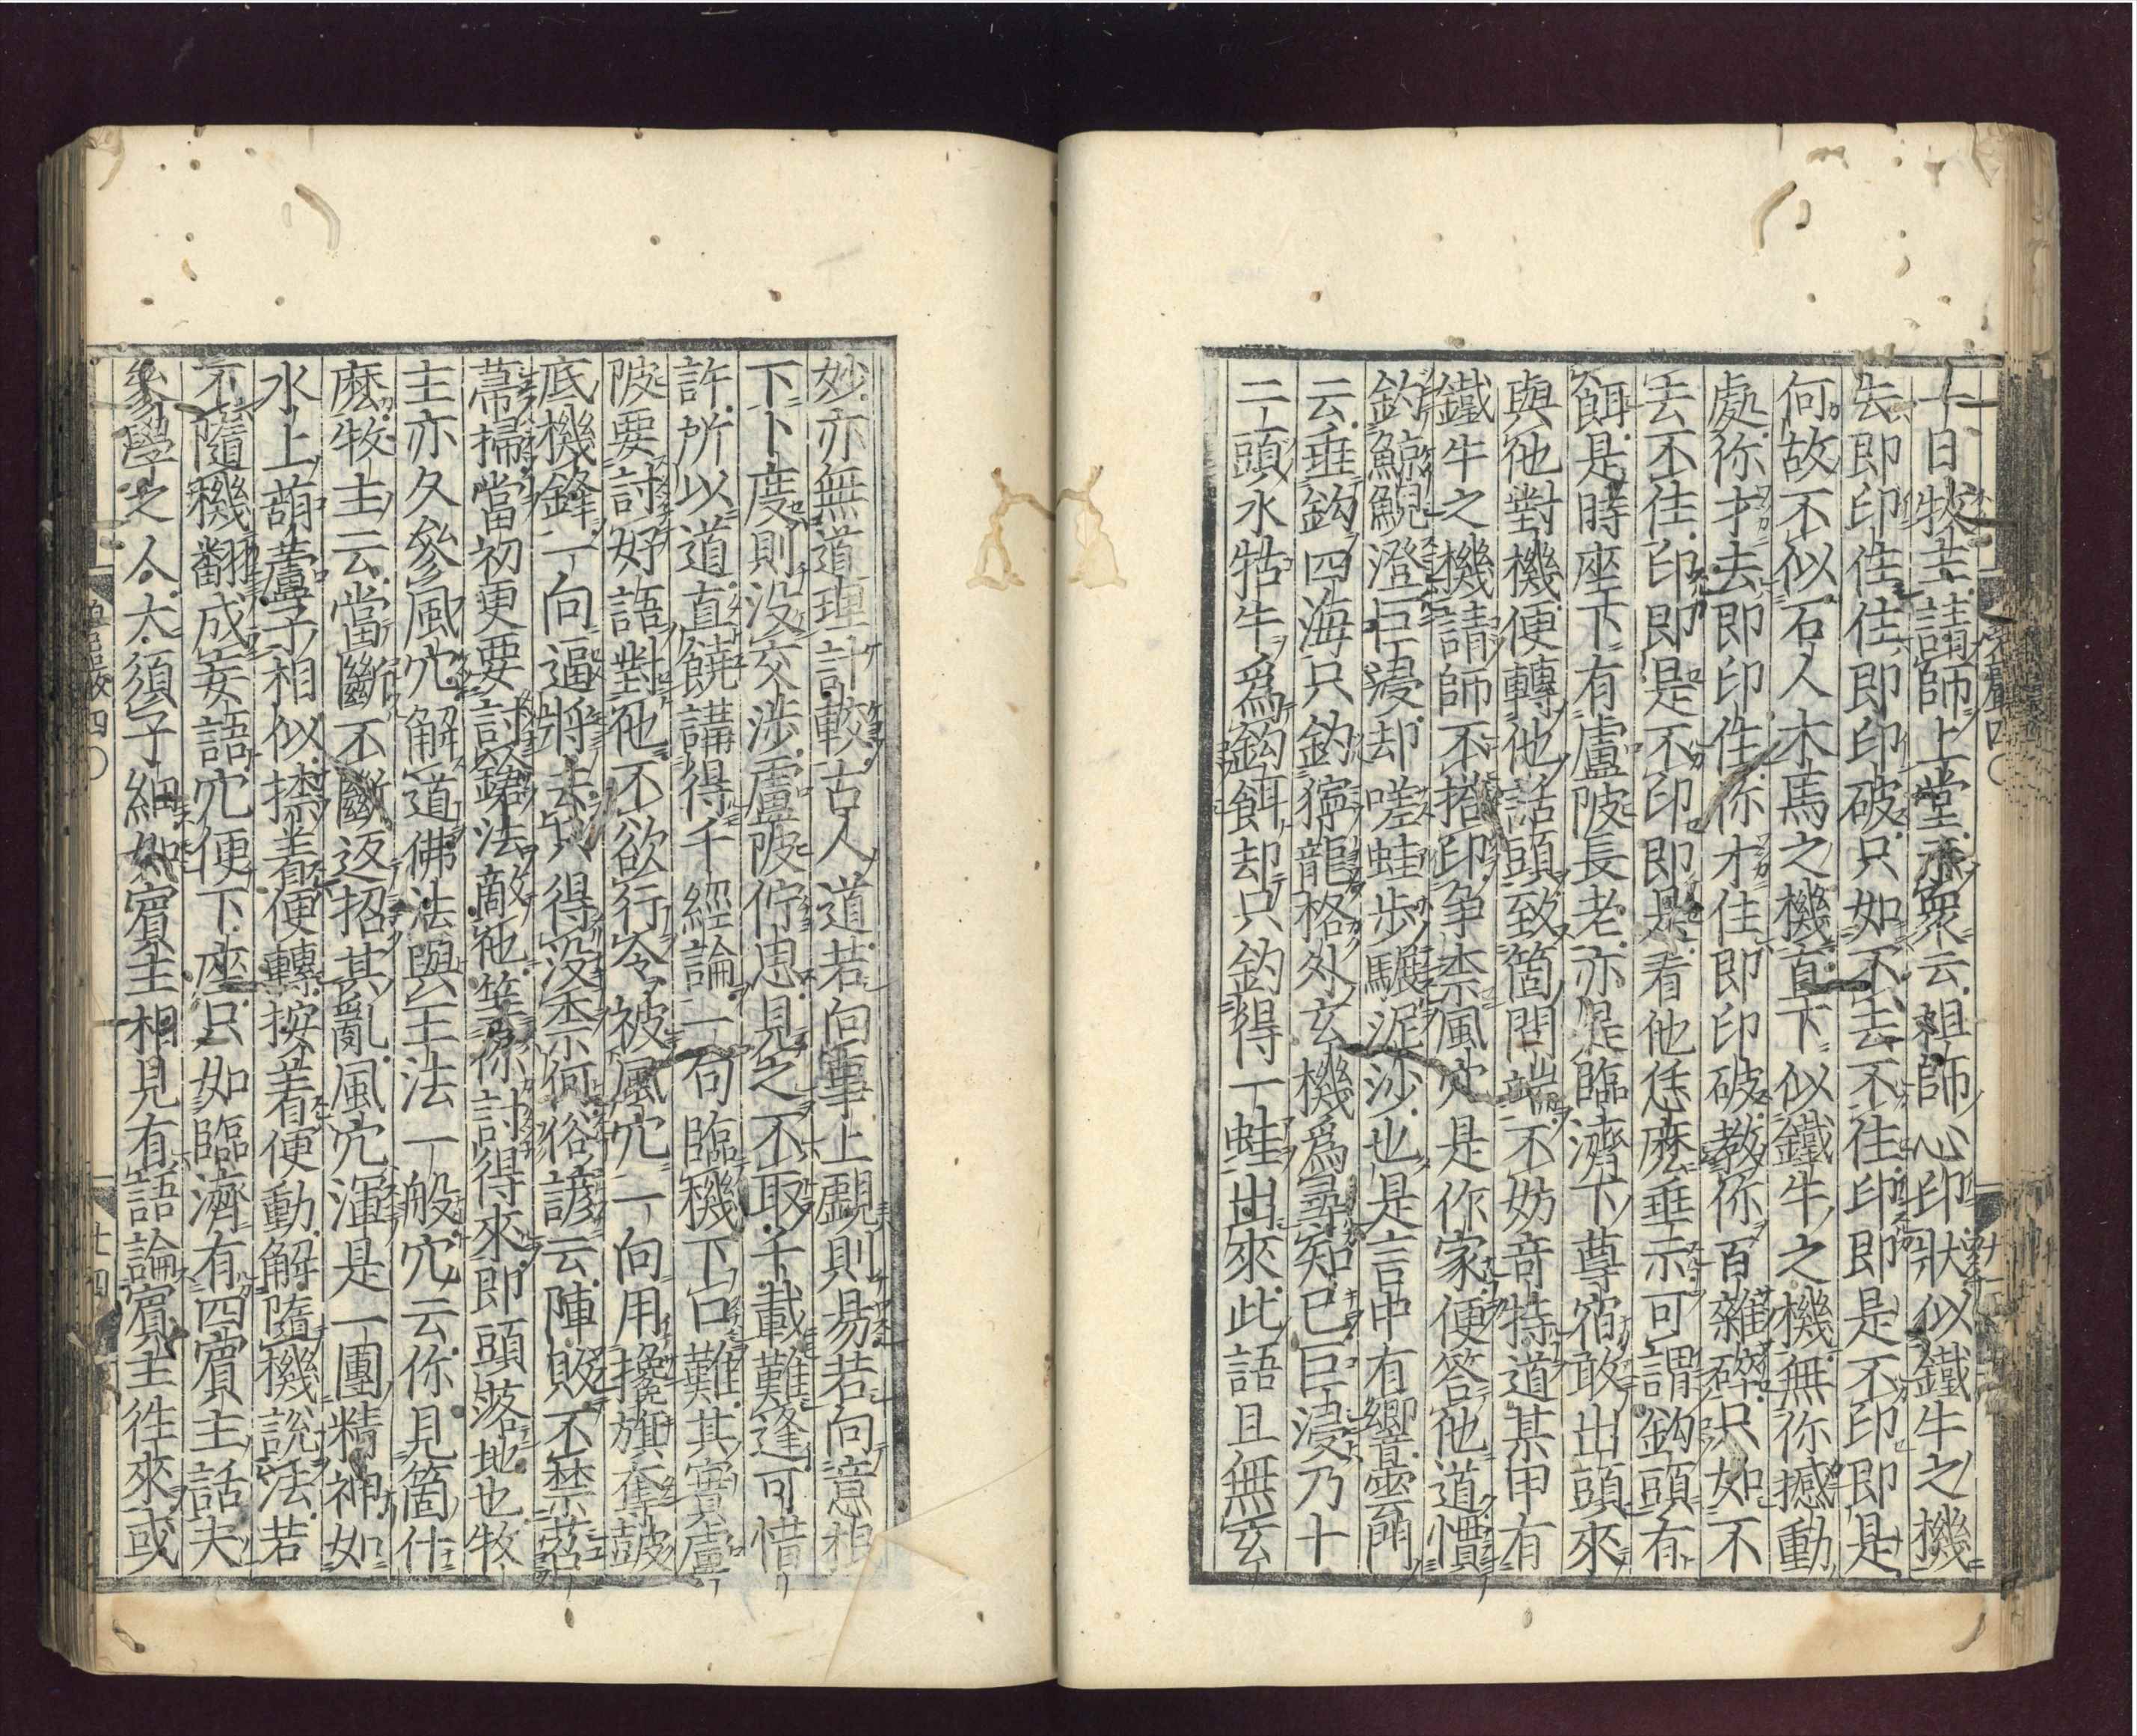 十日牧主請師上堂示衆云祖師心印狀似鐵牛之機
去即印住住即印破只如不去不住印即是不印即是
何故不似石人木馬之機直下似鐵牛之機無你撼動
處你才去即印住你才住即印破教你百雜碎只如不
去不住印即是不印即是看他恁麽垂示可謂鈎頭有
餌是時座下有盧陂長老亦是臨濟下尊宿敢出頭來
與他對機便轉他話頭致箇問端不妨奇特道某甲有
鐵牛之機請師不搭印爭柰風穴是作家便答他道慣
釣鯨鯢澄巨浸却嗟蛙步驟泥沙也是言中有響雲門
云垂鈎四海只釣獰龍格外玄機爲尋知已巨浸乃十
二頭水牯牛爲鈎餌却只釣得一蛙出來此語且無玄
妙亦無道理計較古人道若向事上覷則易若向意根
下卜度則没交涉盧陂佇思見之不取千載難逢可惜
許所以道直饒講得千經論一句臨機下口難其實盧
陂要討好語對他不欲行令被風穴一向用攙旗奪皷
底機鋒一向逼將去只得没柰何俗諺云陣敗不禁苕
箒掃當初更要討鎗法敵他等你討得來即頭落地也牧
主亦久參風穴解道佛法與王法一般穴云你見箇什
麽牧主云當斷不斷返招其亂風穴渾是一團精神如
水上葫蘆子相似捺着便轉按着便動解隨機說法若
不隨機翻成妄語穴便下座只如臨濟有四賓主話夫
參學之人大須子細如賓主相見有語論賓主往來或